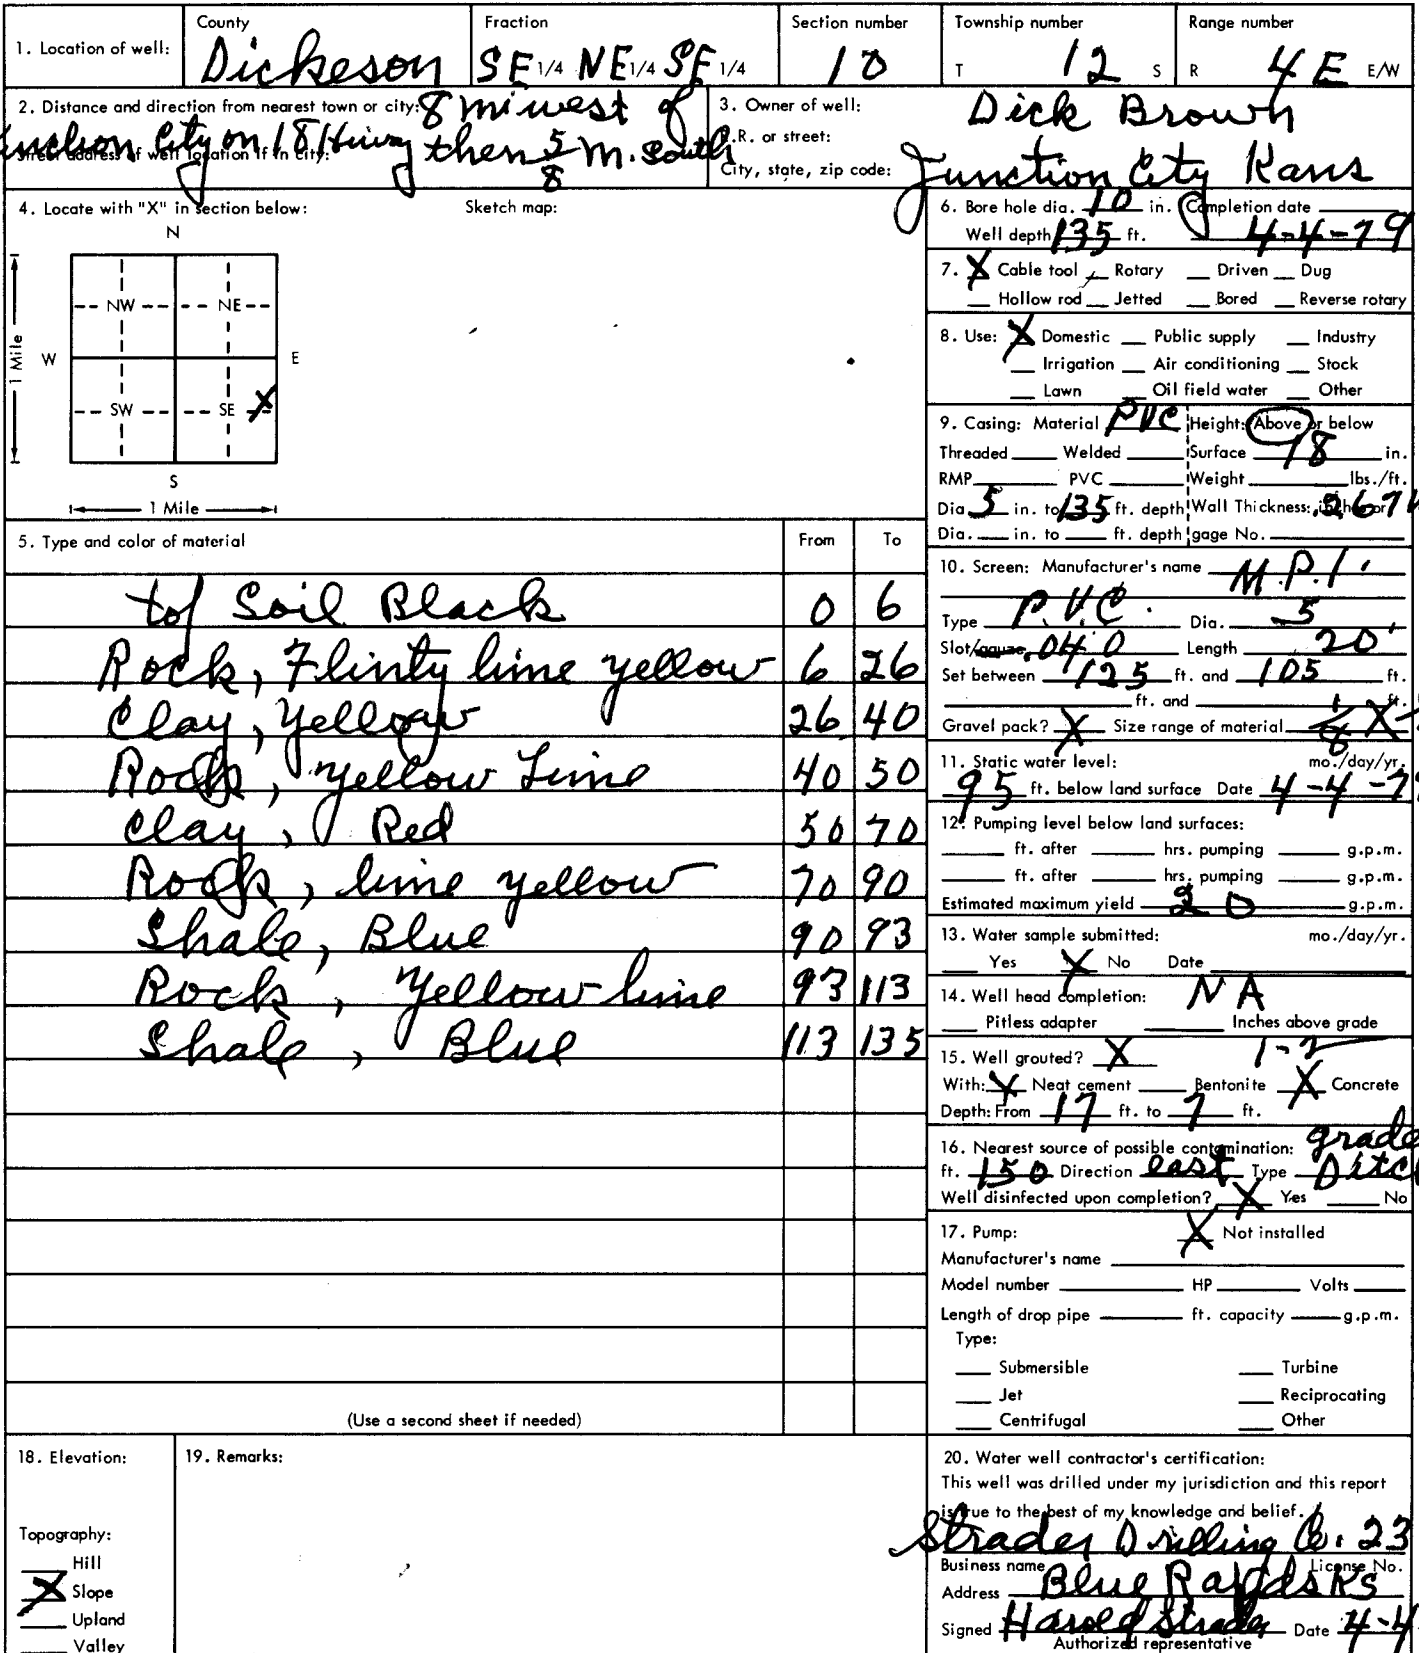 1. Location of well: County Dickeson Fraction SE 1/4 NE 1/4 SE 1/4 Section number 10 Township number T 12 S Range number R 4 E E/W
2. Distance and direction from nearest town or city: 8 mi west of
Junction City on 18 Hiway then 5/8 M. South
Street address of well location if in city:
3. Owner of well: Dick Brown
R.R. or street:
City, state, zip code: Junction City Kans
4. Locate with "X" in section below: Sketch map:
N
NW NE
W E
1 Mile
SW SE X
S
1 Mile
5. Type and color of material From To
to/ Soil Black 0 6
Rock, Flinty lime yellow 6 26
Clay, Yellow 26 40
Rock, yellow Lime 40 50
Clay, Red 50 70
Rock, lime yellow 70 90
Shale, Blue 90 93
Rock, Yellow lime 93 113
Shale, Blue 113 135
(Use a second sheet if needed)
6. Bore hole dia. 10 in. Completion date
Well depth 135 ft. 4-4-79
7. X Cable tool Rotary Driven Dug
Hollow rod Jetted Bored Reverse rotary
8. Use: X Domestic Public supply Industry
Irrigation Air conditioning Stock
Lawn Oil field water Other
9. Casing: Material PVC Height: Above or below
Threaded Welded Surface 18 in.
RMP PVC Weight lbs./ft.
Dia 5 in. to 135 ft. depth Wall Thickness: inches or .267
Dia. in. to ft. depth gage No.
10. Screen: Manufacturer's name M.P.I.
Type P.V.C. Dia. 5
Slot/gauze .040 Length 20'
Set between 125 ft. and 105 ft.
ft. and ft.
Gravel pack? X Size range of material X
11. Static water level: mo./day/yr.
95 ft. below land surface Date 4-4-79
12. Pumping level below land surfaces:
ft. after hrs. pumping g.p.m.
ft. after hrs. pumping g.p.m.
Estimated maximum yield 20 g.p.m.
13. Water sample submitted: mo./day/yr.
Yes X No Date
14. Well head completion: NA
Pitless adapter Inches above grade
15. Well grouted? X 1-2
With: X Neat cement Bentonite X Concrete
Depth: From 17 ft. to 7 ft.
16. Nearest source of possible contamination: grader
ft. 150 Direction east Type Ditch
Well disinfected upon completion? X Yes No
17. Pump: X Not installed
Manufacturer's name
Model number HP Volts
Length of drop pipe ft. capacity g.p.m.
Type:
Submersible Turbine
Jet Reciprocating
Centrifugal Other
18. Elevation:
Topography:
Hill
X Slope
Upland
Valley
19. Remarks:
20. Water well contractor's certification:
This well was drilled under my jurisdiction and this report
is true to the best of my knowledge and belief.
Strader Drilling Co. 23
Business name License No.
Address Blue Rapids Ks
Signed Harold Strader Date 4-4
Authorized representative